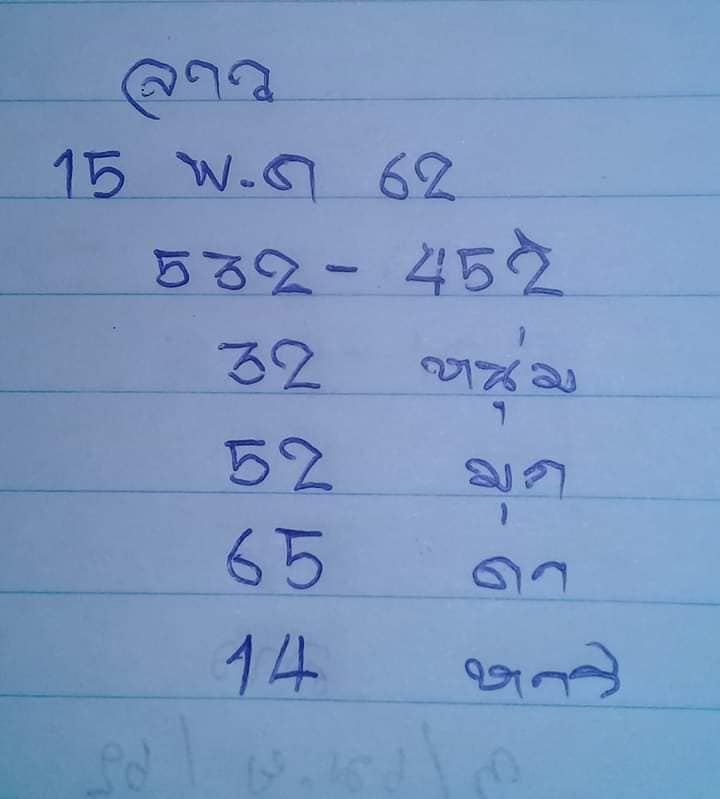 ลาว
15 พ.ค 62
532 - 452
32 หนุ่ม
52 มุก
65 ดา
14